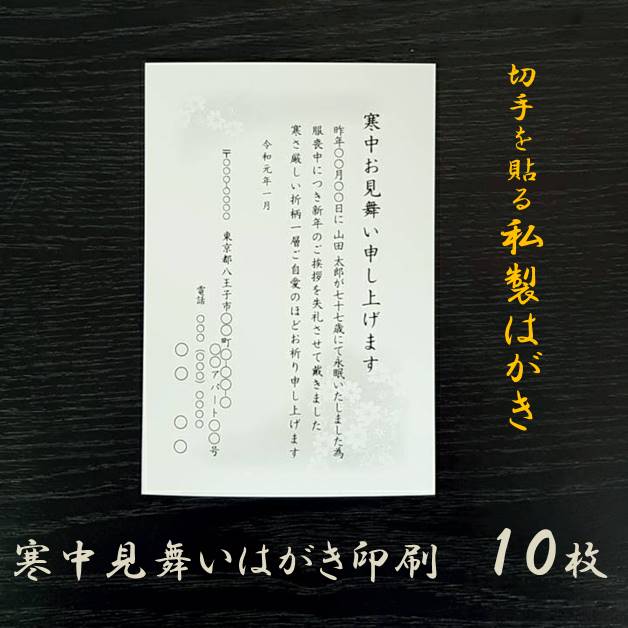 切手を貼る私製はがき
寒中お見舞い申し上げます
昨年〇〇月〇〇日に 山田 太郎が七十七歳にて永眠いたしました為
服喪中につき新年のご挨拶を失礼させて戴きました
寒さ厳しい折柄一層ご自愛のほどお祈り申し上げます
令和元年一月
〒〇〇〇-〇〇〇〇 東京都八王子市〇〇町〇-〇〇-〇
〇〇アパート〇〇号
電話 〇〇〇(〇〇〇)〇〇〇〇
〇〇 〇〇
寒中見舞いはがき印刷 10枚